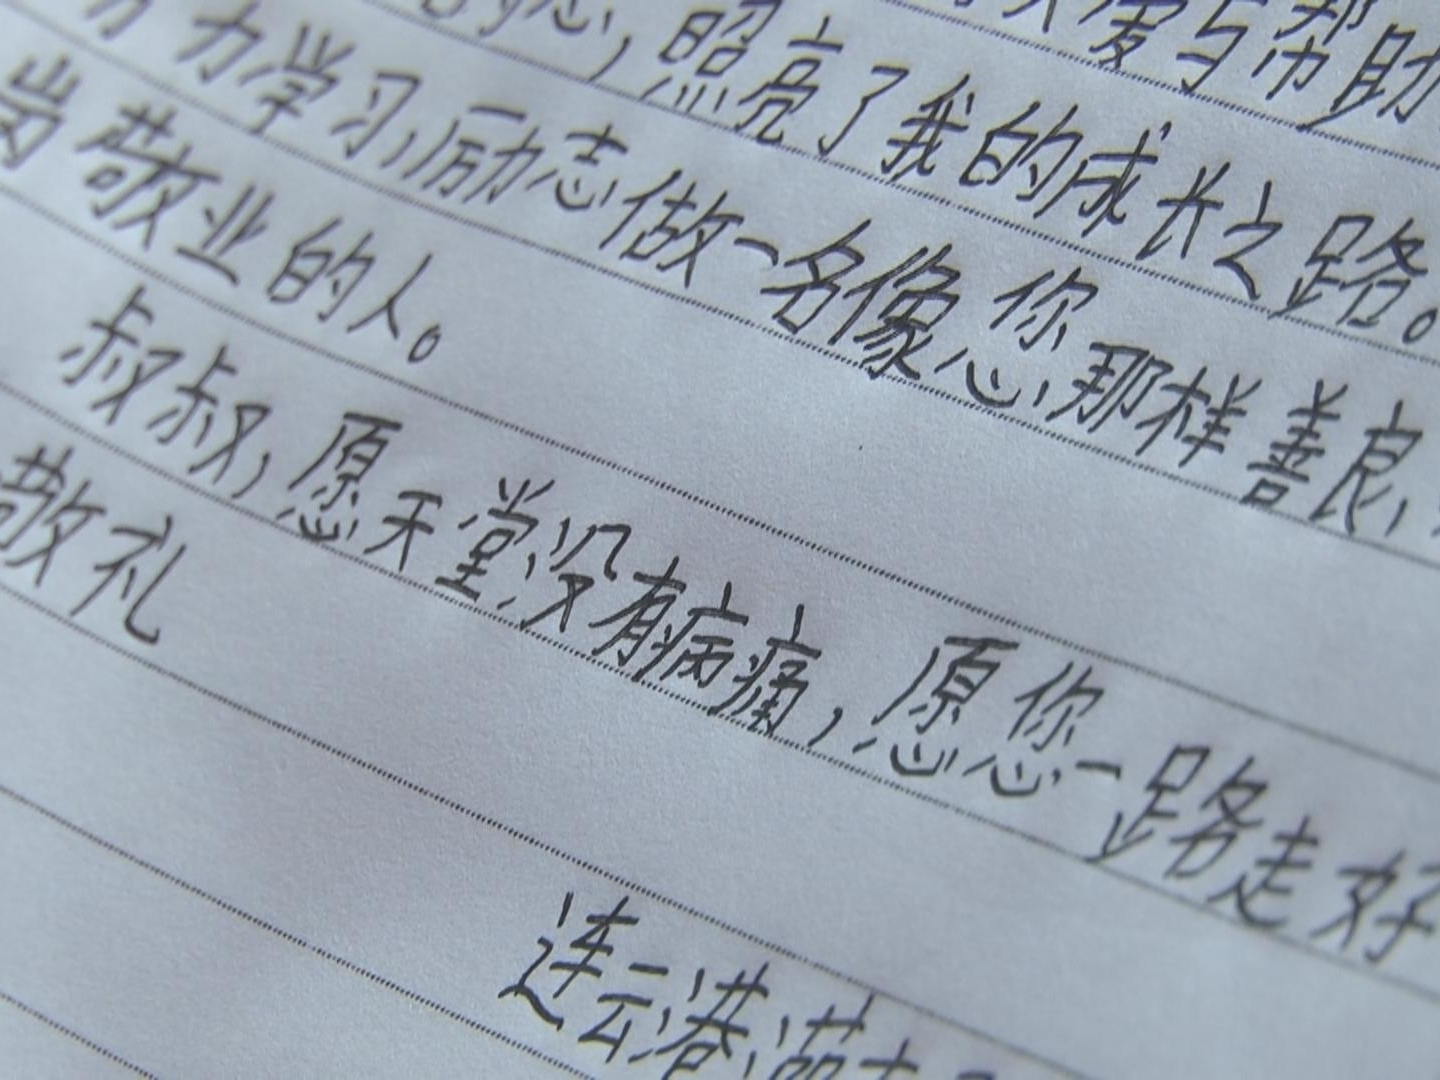 爱与帮助
照亮了我的成长之路。
力学习,励志做一名像您那样善良、
岗敬业的人。
叔叔,愿天堂没有病痛,愿您一路走好
敬礼
连云港